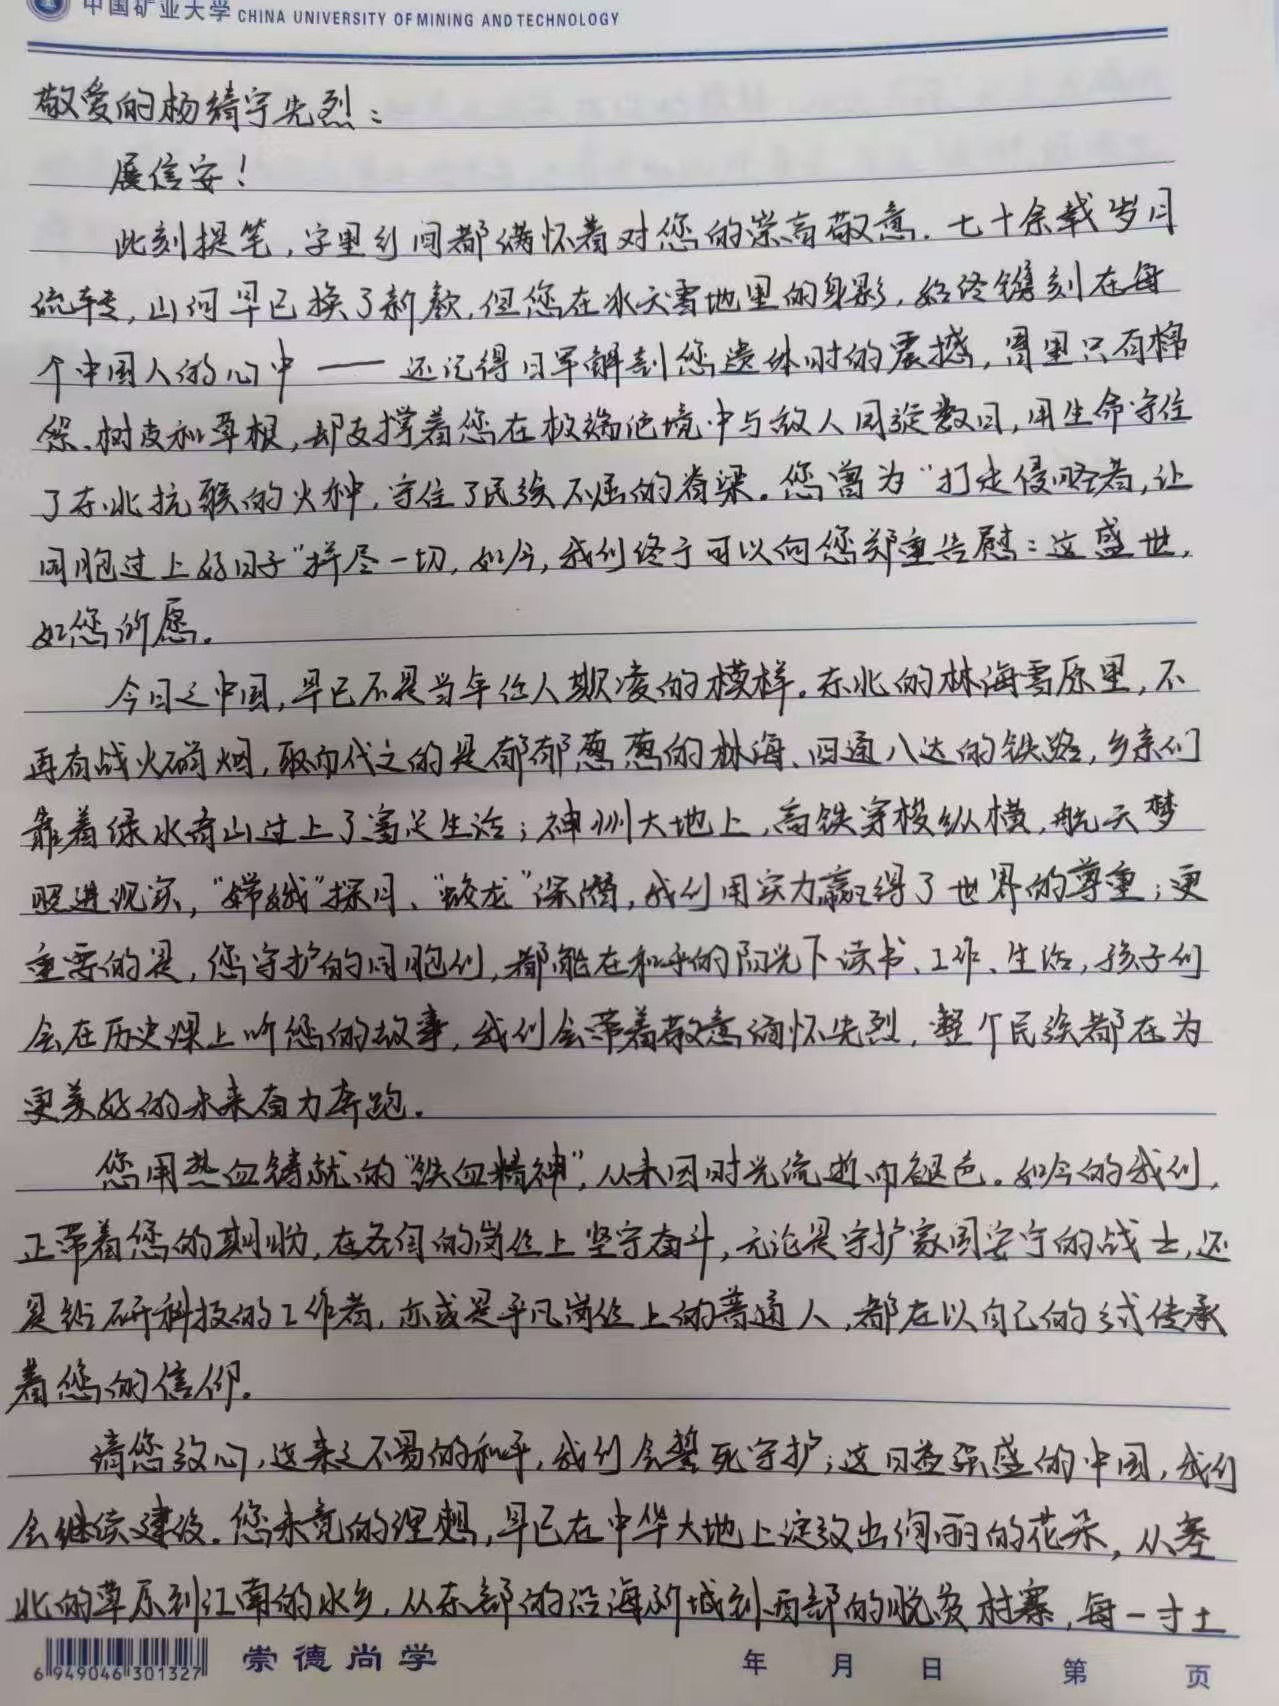 中国矿业大学 CHINA UNIVERSITY OF MINING AND TECHNOLOGY
敬爱的杨靖宇先烈：
展信安！
此刻提笔，字里行间都满怀着对您的崇高敬意。七十余载岁月
流转，山河早已换了新款，但您在冰天雪地里的身影，始终镌刻在每
个中国人的心中——还记得日军解剖您遗体时的震撼，胃里只有棉
絮、树皮和草根，却支撑着您在极端绝境中与敌人周旋数日，用生命守住
了东北抗联的火种，守住了民族不屈的脊梁。您曾为“打走侵略者，让
同胞过上好日子”拼尽一切，如今，我们终于可以向您郑重告慰：这盛世，
如您所愿。
今日之中国，早已不是当年任人欺凌的模样。东北的林海雪原里，不
再有战火硝烟，取而代之的是郁郁葱葱的林海、四通八达的铁路，乡亲们
靠着绿水青山过上了富足生活；神州大地上，高铁穿梭纵横，航天梦
照进现实，“嫦娥”探月、“蛟龙”深潜，我们用实力赢得了世界的尊重；更
重要的是，您守护的同胞们，都能在和平的阳光下读书、工作、生活，孩子们
会在历史课上听您的故事，我们会带着敬意缅怀先烈，整个民族都在为
更美好的未来奋力奔跑。
您用热血铸就的“铁血精神”，从未因时光流逝而褪色。如今的我们，
正带着您的期盼，在各自的岗位上坚守奋斗，无论是守护家国安宁的战士，还
是钻研科技的工作者，亦或是平凡岗位上的普通人，都在以自己的方式传承
着您的信仰。
请您放心，这来之不易的和平，我们会誓死守护；这日益强盛的中国，我们
会继续建设。您未竟的理想，早已在中华大地上绽放出绚丽的花朵，从塞
北的草原到江南的水乡，从东部的沿海新城到西部的脱贫村寨，每一寸土
6 949046 301327 崇德尚学 年 月 日 第 页